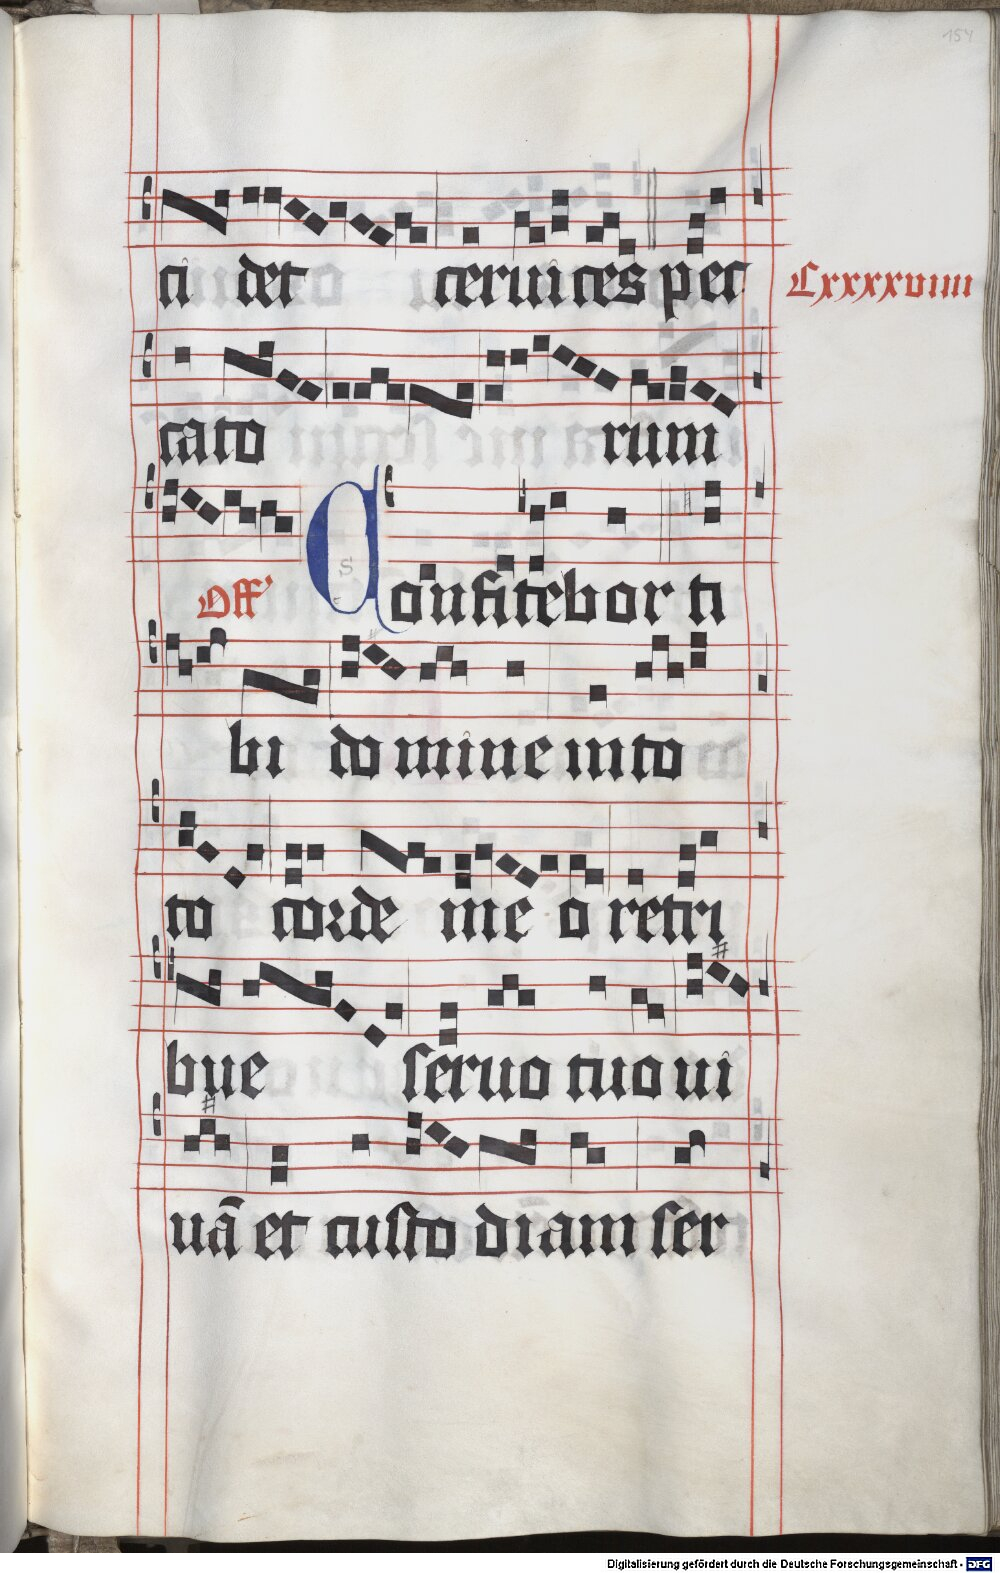 154
ti det ceruices pec
Cxxxxviiii
cato rum
Off' Confitebor ti
bi domine in to
to corde meo retri
bue seruo tuo ui
uā et custodiam ser
Digitalisierung gefördert durch die Deutsche Forschungsgemeinschaft - DFG